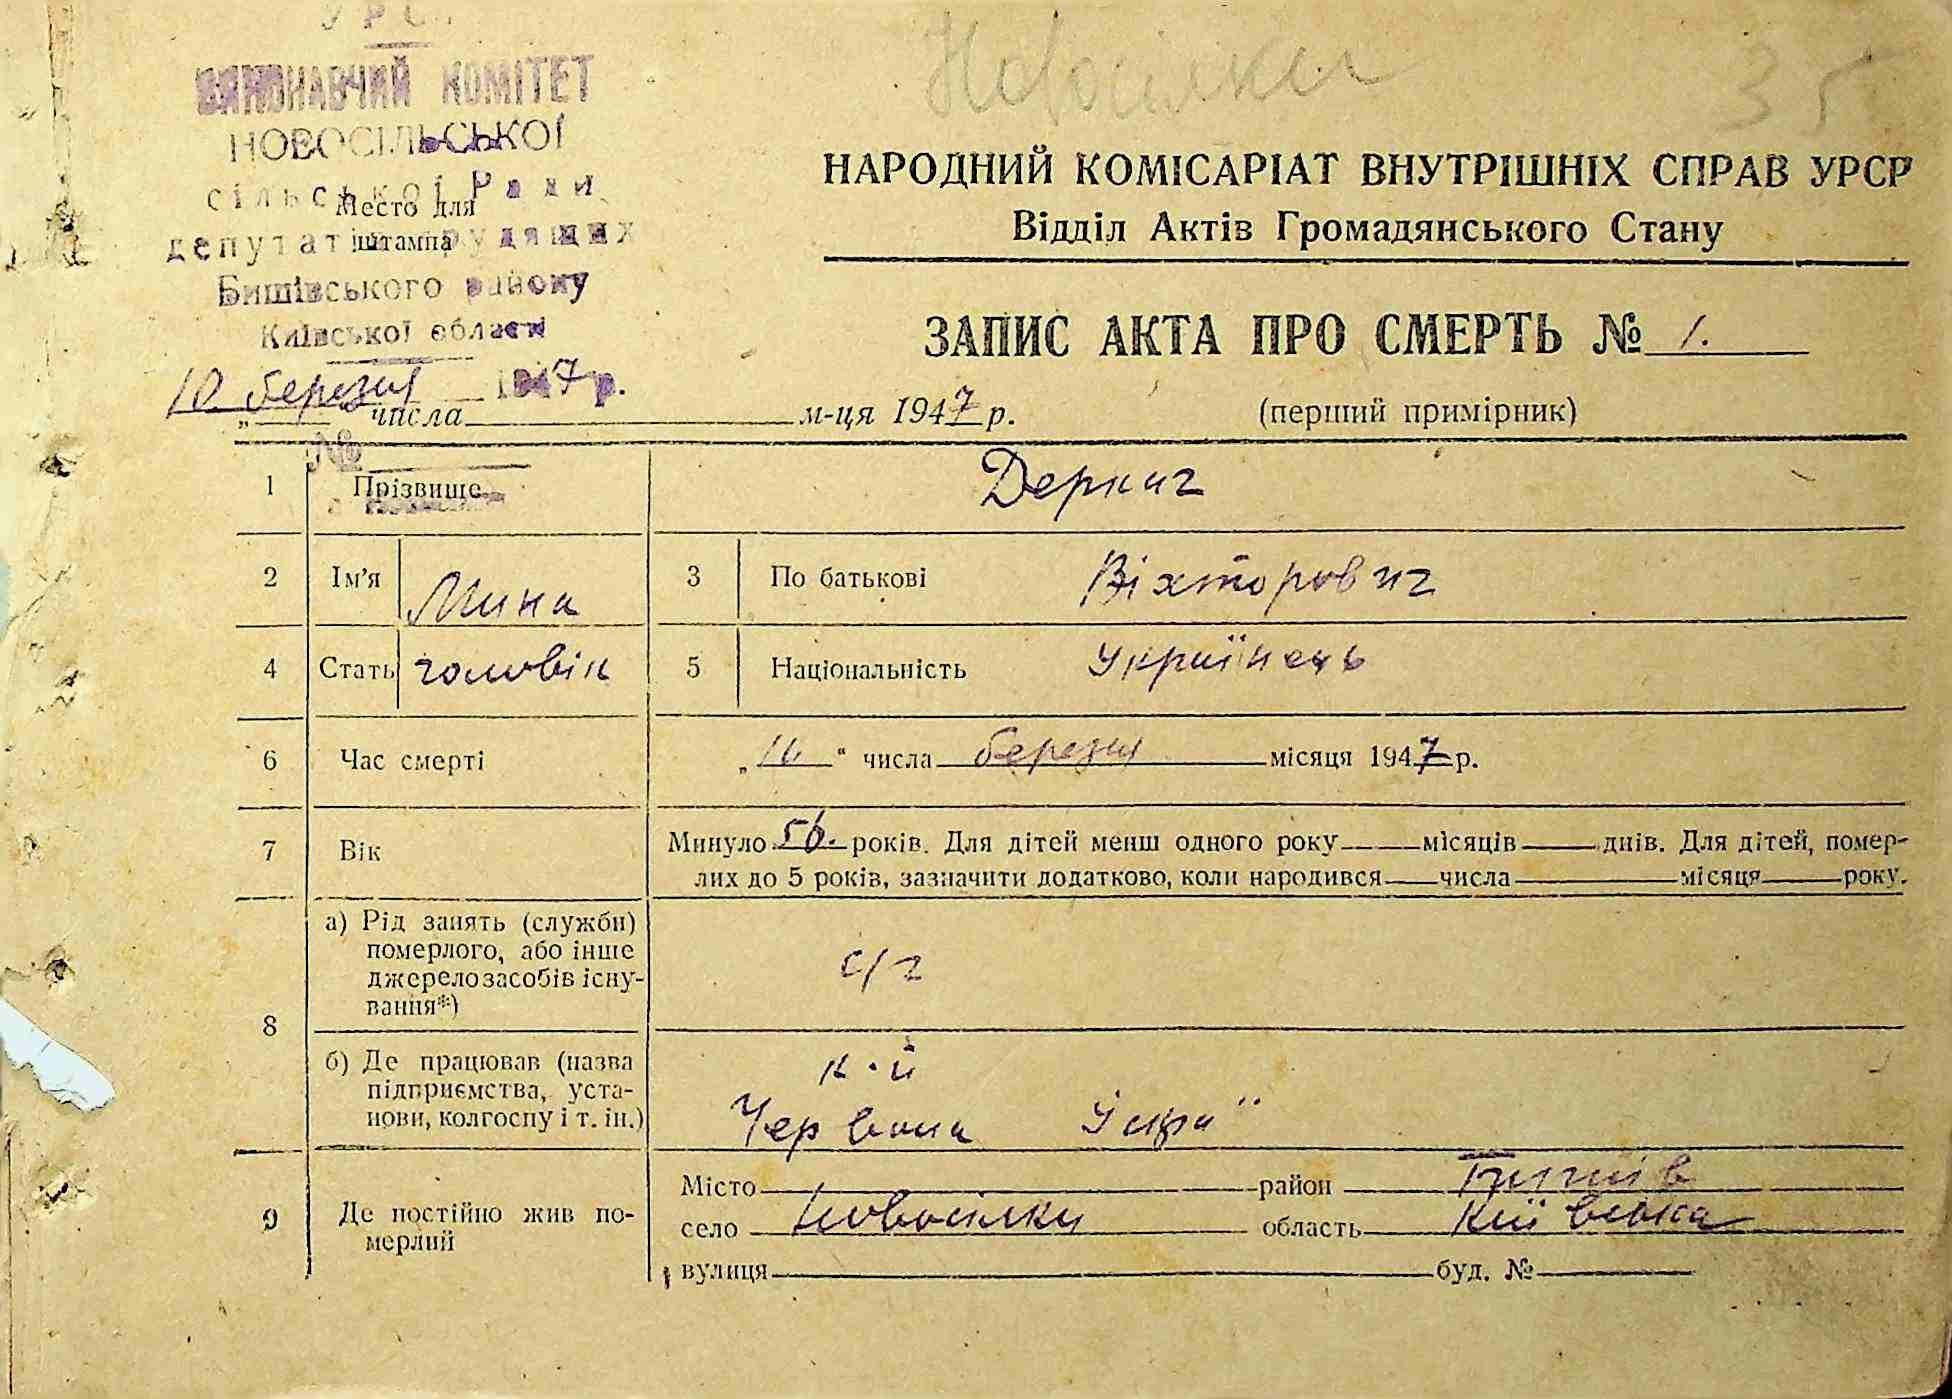 УРС.
ВИКОНАВЧИЙ КОМІТЕТ
НОВОСІЛЬСЬКОЇ
сільської Ради
депутатів трудящих
Бишівського району
Київської області
10 березня 1947 р.
№
Место для
штампа
Новосілки
35
НАРОДНИЙ КОМІСАРІАТ ВНУТРІШНІХ СПРАВ УРСР
Відділ Актів Громадянського Стану
ЗАПИС АКТА ПРО СМЕРТЬ № 1.
„ числа м-ця 1947 р. (перший примірник)
1 Прізвище Деркач
2 Ім'я Мина 3 По батькові Віхторович
4 Стать чоловік 5 Національність Українець
6 Час смерті „10“ числа березня місяця 1947 р.
7 Вік Минуло 56. років. Для дітей менш одного року місяців днів. Для дітей, помер-
лих до 5 років, зазначити додатково, коли народився числа місяця року.
8 а) Рід занять (служби)
померлого, або інше
джерело засобів існу-
вання*)
с/г
б) Де працював (назва
підприємства, уста-
нови, колгоспу і т. ін.)
к-п
Червона
9 Де постійно жив по-
мерлий
Місто район Бишів
село Новосілки область Київська
вулиця буд. №